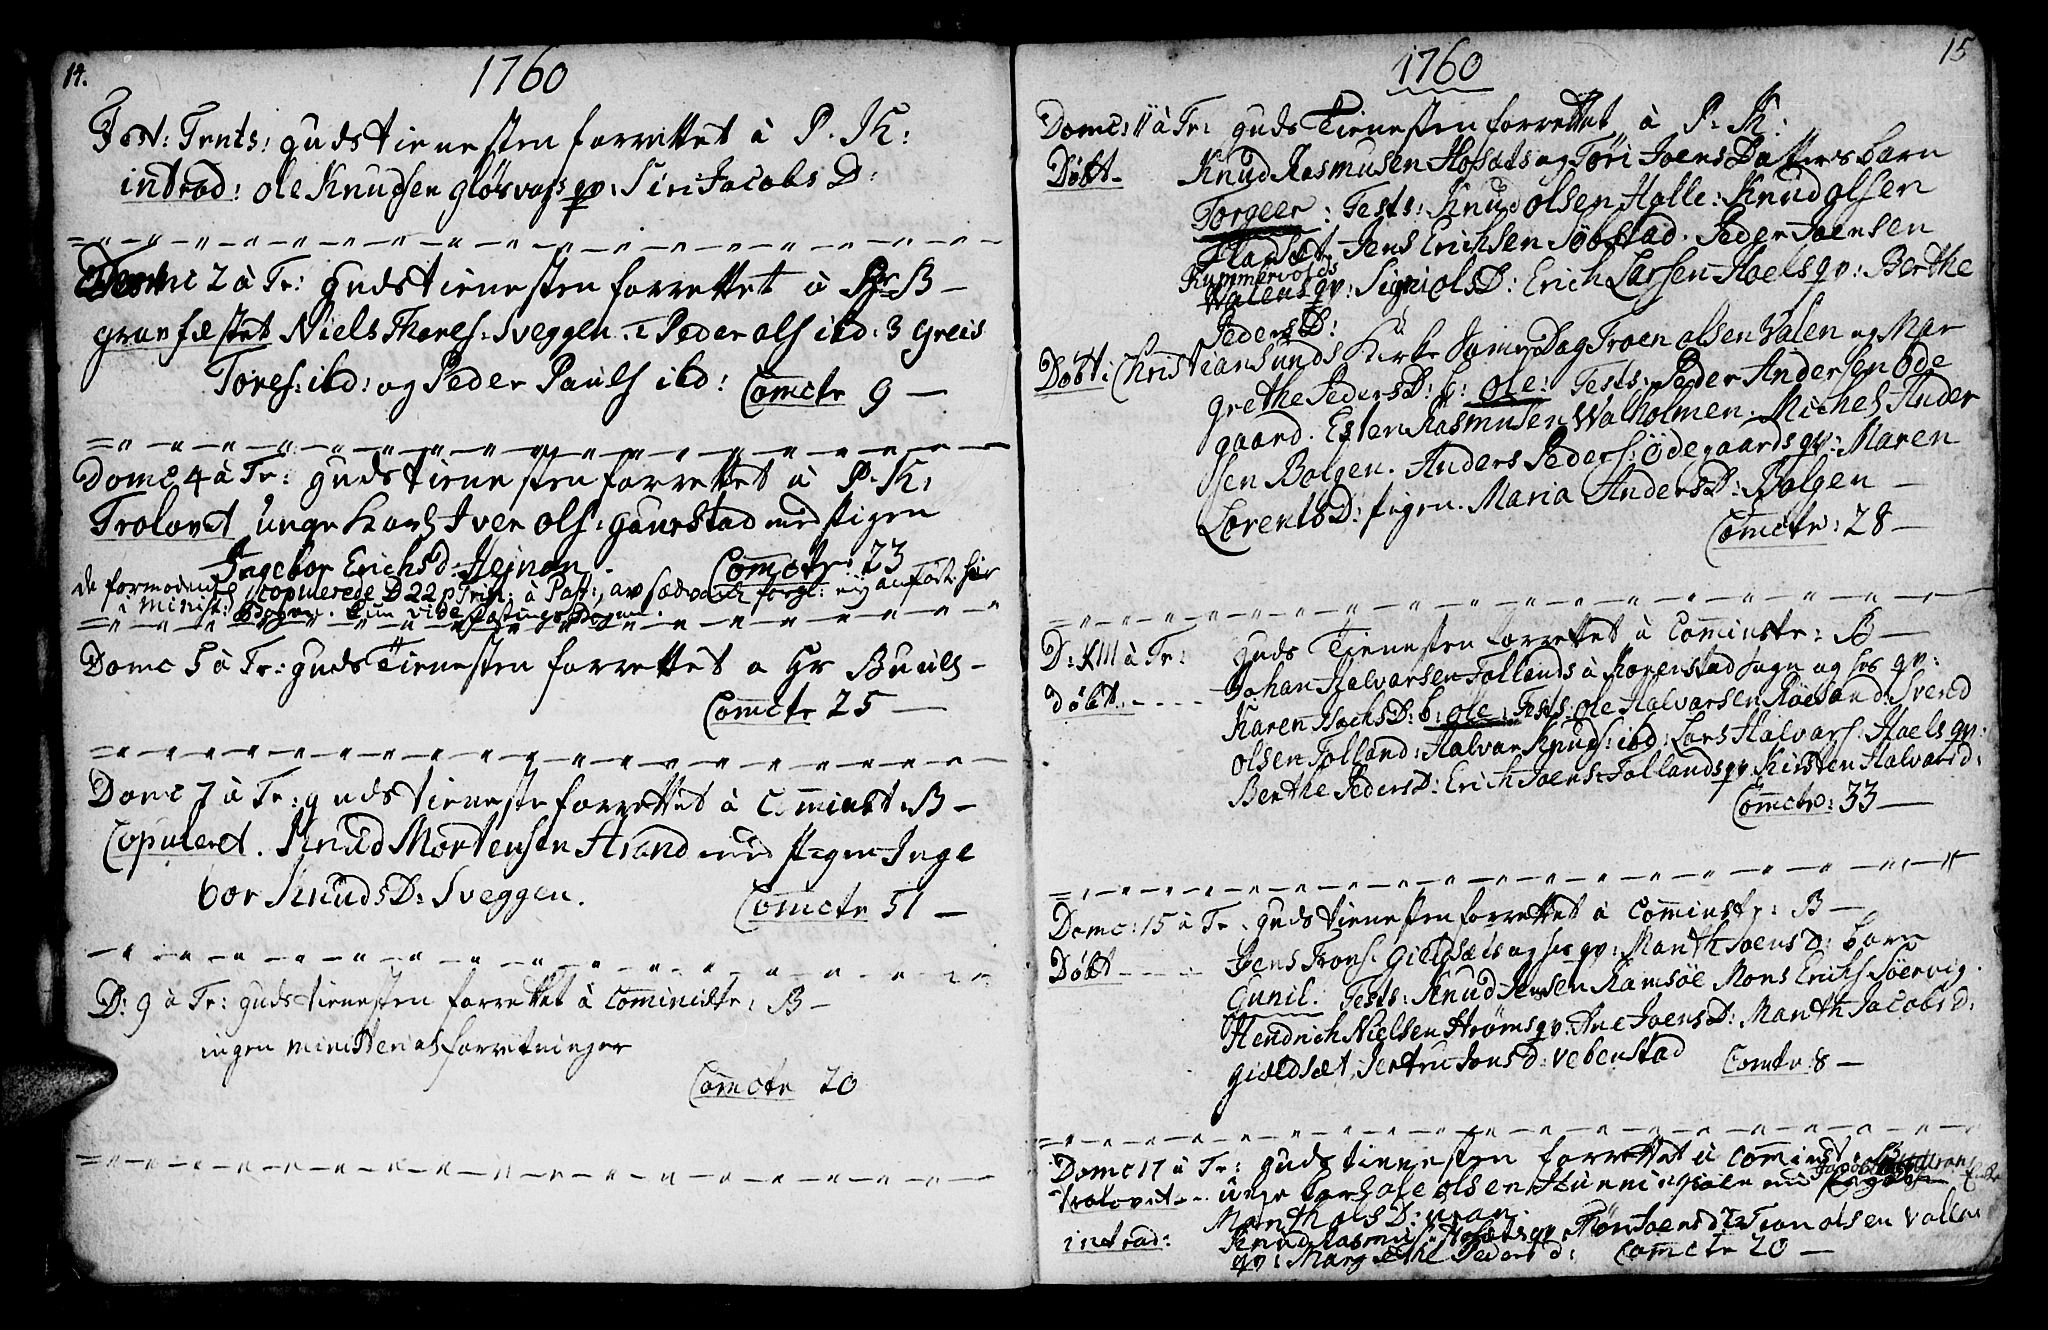 14.
1760
Fest: Trnts: guds tienesten forrettet à P. K:
introd: Ole Knudsen gløsvogs qv: Siri Jacobs D:
Domc 2 à Tr: Guds tienesten forrettet à B-
gravfæstet Niels Thores: Sveggen. Peder ols ibd: 3 Greis
Tores: ibd: og Peder Pauls ibd: Comctr 9 -
Domc 4 à Tr: guds tienesten forrettet à P. K:
Trolovet unge Karl Iver ols: gaurstad med pigen
Ingebor Erichsd: Hejnan. Comctr: 23
de formodentl copulerede D 22 p Trin: à Past: av forgl: ey anført her
i Minist: Bogen.
Domc 5 à Tr: guds Tienesten forrettet a Hr Buuls -
Comctr 25 -
Domc 7 à Tr: guds tieneste forrettet à Cominist: B -
Copuleret. Knud Mortensen Strand med pigen Inge
bor Knuds D: Sveggen. Comctr 51 -
D: 9 à Tr: guds tienesten forrettet à Coministr: B -
ingen ministerial forretninger
Comctr 20
15
1760
Domc: 11 à Tr: guds Tienesten forrettet à P. K:
Døbt- Knud Rasmusen Hofsæts og Tøri Joens Datters barn
Torgeer: Tests: Knud olsen Halle: Knud olsen
Jens Erichsen Søbstad. Peder Joensen
Rummervolds
qv: Signi ols D: Erich Larsen Hoels qv: Berthe
Peders D:
Døbt i Christiansunds Kirke samme Dag Troen olsen Valen og Mar
grethe Peders D: b: ole: Tests: Peder Andersen Øde
gaard. Esten Rasmusen Walholmen. Michel Ander
sen Bolgen. Anders Peders: Ødegaards qv: Maren
Lorents D: pigen. Maria Anders D: Bolgen -
Comctr: 28 -
D: XIII à Tr: guds Tienesten forrettet à Cominstr: B -
døbt.---- Johan Halvarsen Follands à Kornstad sogn og hs qv:
Karen Isachs D: b: ole: Tests: ole Halvarsen Røesand: Svend
olsen Folland: Halvar Knuds: ibd: Lars Halvars: Hoels qv:
Berthe Peders D: Erich Joens: Follands qv: Kirsten Halvars d:
Comctr: 33 -
Domc: 15 à Tr. guds tienesten forrettet à Cominstr: B -
Døbt --- Jens Trons: Gieldsæts og hs qv: Marith Joens D: barn
Gunil. Tests: Knud Jensen Ramsøe Mons Erichs: Søervig.
Hendrich Nielsen Strøms qv: Ane Joens D: Marith Jacobs D:
gieldsæt, Jertru Jons d: vebenstad Comtr: 8 -
Domc 17 à Tr: guds tienesten forrettet à Cominst: B
trolovet -- unge Karl ole olsen med
Marith ols D:
introd: Knud Rasmus: Hofsæts qv: Tøri Joens d: Tron olsen Vallens
qv: Margrethe Peders d: Comctr 20 -